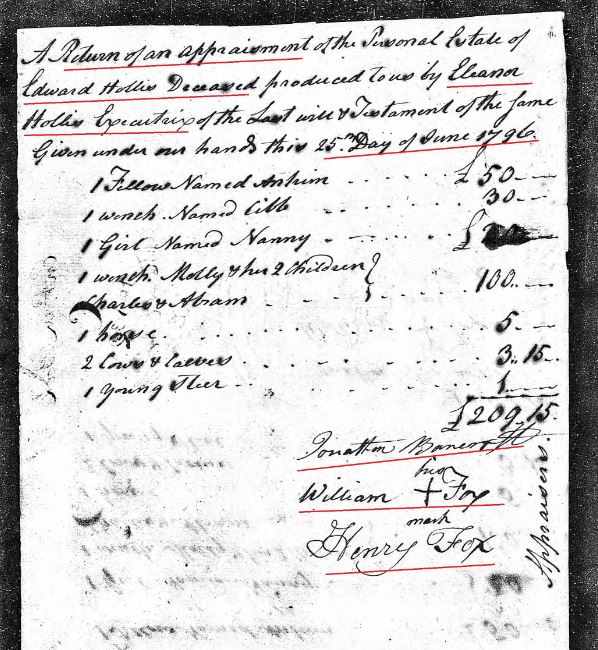 A Return of an appraisment of the Personal Estate of
Edward Hollis Deceased produced to us by Eleanor
Hollis Executrix of the Last will & Testament of the Same
Given under our hands this 25th Day of June 1796
1 Fellow Named £50
1 wench Named 30
1 Girl Named Nanny £
1 wench Molly & her 2 Children }
Charles & Abram 100
1 horse 5
2 Cows & Calves 3 15
1 Young Steer 1
£209 15
Jonathan
his
William + Fox
mark
Henry Fox
Appraisers.